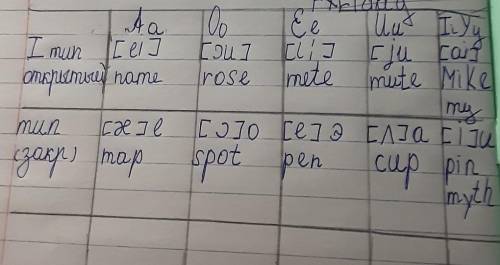 Aa Oo Ee Uu Ii, Yy
I тип [ei] [əu] [i:] [ju [ai]
открытый name rose mete mute Mike
my
тип [æ] е [ɔ] о [e] э [ʌ] а [i] и
(закр) map spot pen cup pin
myth